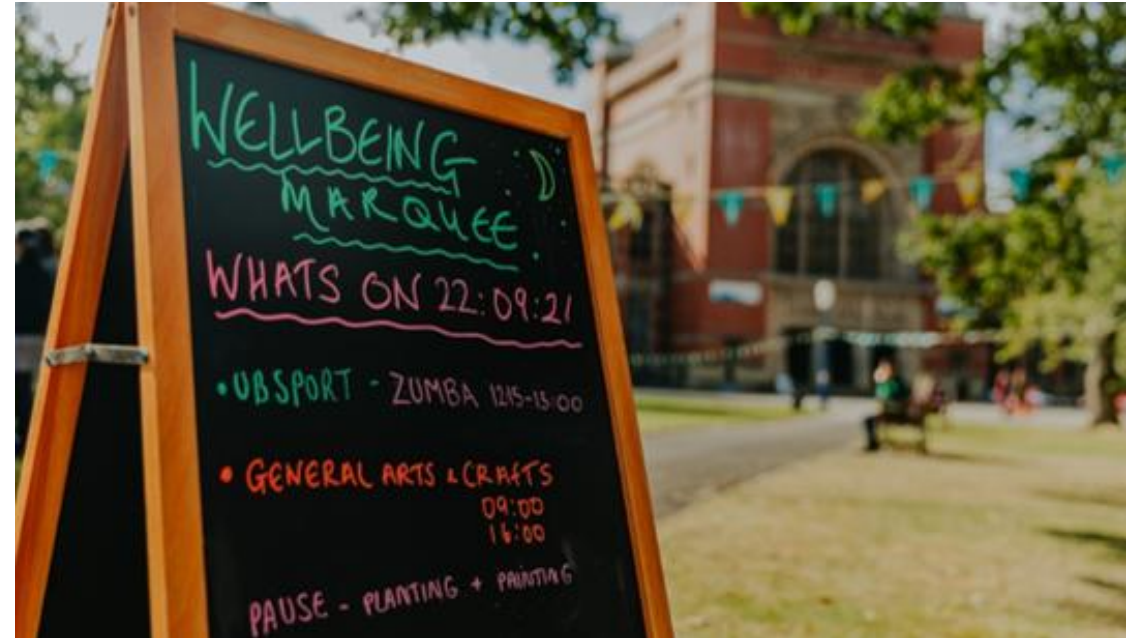 WELLBEING
MARQUEE
WHATS ON 22:09:21
• UBSPORT - ZUMBA 1215-13:00
• GENERAL ARTS & CRAFTS
09:00
16:00
PAUSE - PLANTING + PAINTING